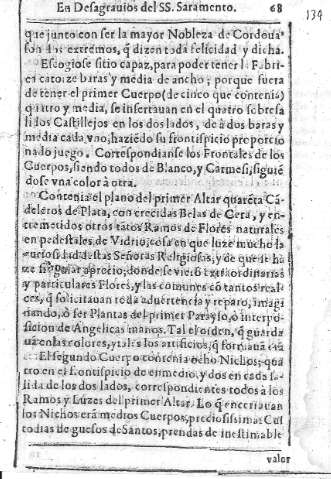 En Desagrauios del SS. Saramento. 68
134
que junto con ser la mayor Nobleza de Cordoua
son dos extremos, q dizen toda felicidad y dicha.
Escogiose sitio capaz, para poder tener la Fabri-
ca catorze baras y media de ancho; porque fuera
de tener el primer Cuerpo (de cinco que contenia)
quatro y media, se insertauan en el quatro sobresa
li dos Castillejos en los dos lados, de à dos baras y
media cada vno, haziēdo su frontispicio proporcio
nado juego. Correspondianse los Frontales de los
Cuerpos, siendo todos de Blanco, y Carmesi, siguiē
dose vna color à otra.
Contenia el plano del primer Altar quarēta Cā-
deleros de Plata, con crecidas Belas de Cera, y en-
tremetidos otros tātos Ramos de Flores naturales
en pedestales de Vidrio, cosa en que luze mucho la
destas Señoras Religiosas, y de que se ha
ze singular aprecio, donde se vierō extraordinarias
y particulares Flores, y las comunes cō tantos real-
ces, q solicitauan toda aduertencia y reparo, imagi
nando, ò ser Plantas del primer Parayso, ò interpo-
sicion de Angelicas manos. Tal el orden, q guarda
uā en las colores, y tales los artificios, q formauā
El segundo Cuerpo contenia ocho Nichos; qua
tro en el frontispicio de enmedio, y dos en cada sa-
lida de los dos lados, correspondientes todos à los
Ramos y Luzes del primer Altar. Lo q encerrauan
los Nichos erā medios Cuerpos, preciosissimas Cus
todias de guesos de Santos, prendas de inestimable
valor